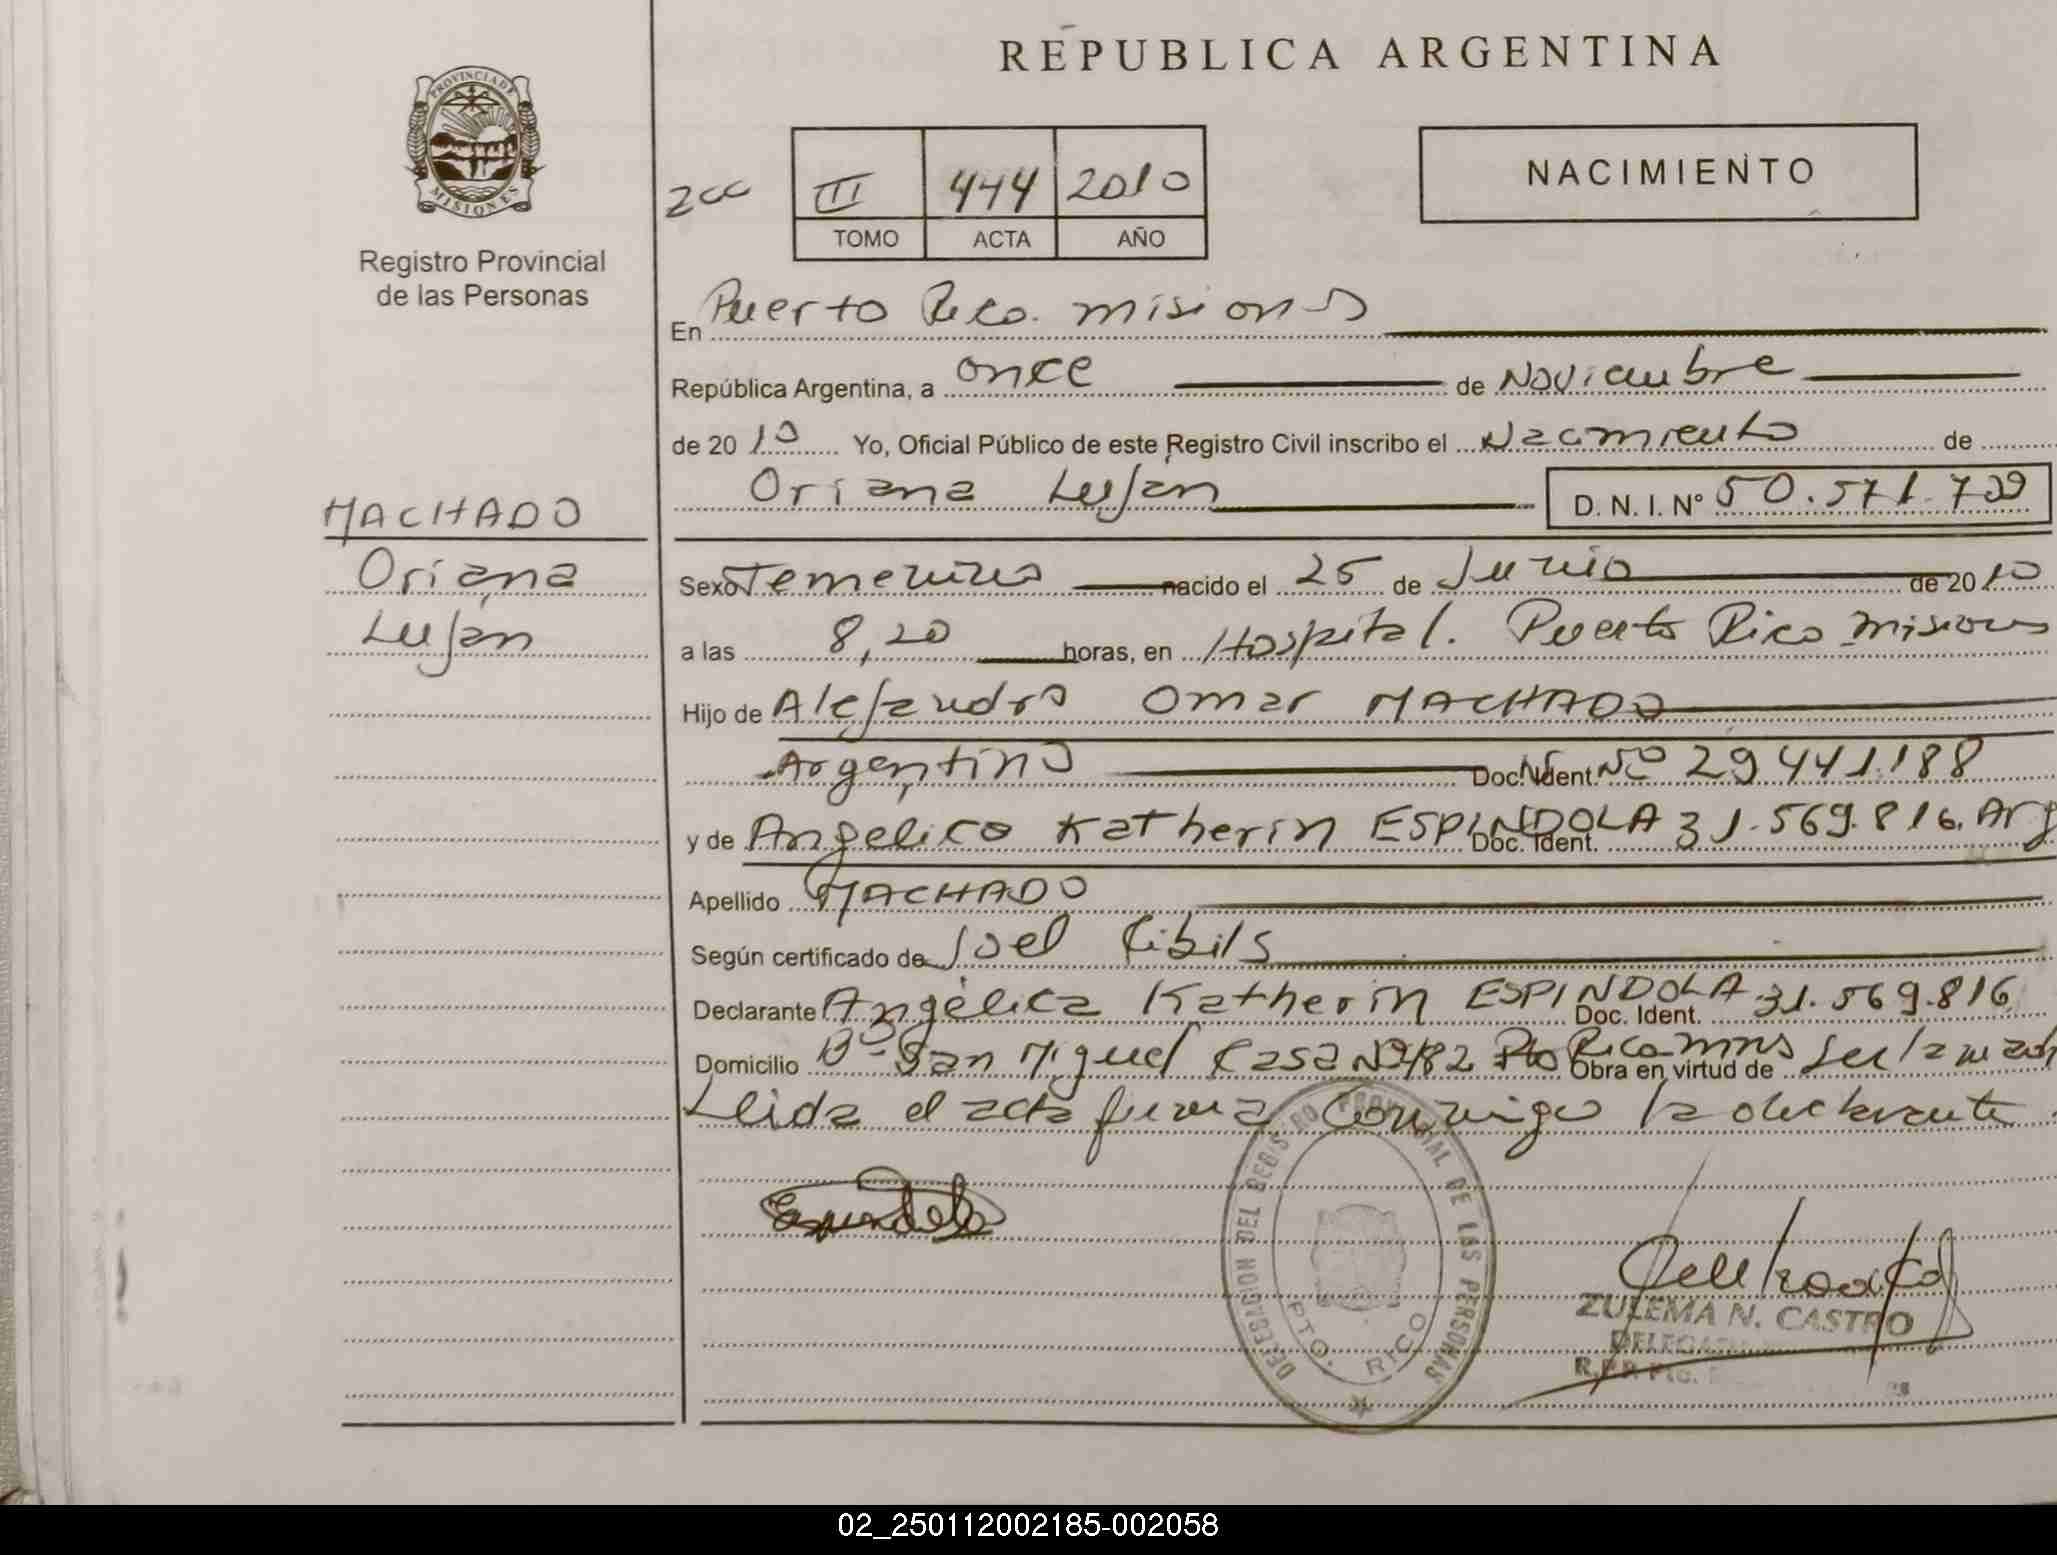 REPUBLICA ARGENTINA
PROVINCIA DE
MISIONES
Registro Provincial
de las Personas
NACIMIENTO
III 444 2010
TOMO ACTA AÑO
En Puerto Rico. misiones
República Argentina, a once de Noviembre
de 2010 Yo, Oficial Público de este Registro Civil inscribo el Nacimiento de
Oriana Luján D. N. I. Nº 50.571.709
MACHADO
Oriana
Luján
Sexo Femenino nacido el 25 de Junio de 2010
a las 8,20 horas, en Hospital. Puerto Rico misiones
Hijo de Alejandro Omar MACHADO
Argentino Doc. Ident. Nº 29441.188
y de Angelica Katherin ESPINDOLA Doc. Ident. 31.569.816. Arg
Apellido MACHADO
Según certificado de Joel Ribils
Declarante Angélica Katherin ESPINDOLA Doc. Ident. 31.569.816
Domicilio Bº San Miguel Casa Nº482 Pto Rico mnes Obra en virtud de
Leida el acta firma Conmigo la declarante
DELEGACION DEL REGISTRO PROVINCIAL DE LAS PERSONAS
PTO. RICO
ZULEMA N. CASTRO
R.P.P. Pto.
02_250112002185-002058